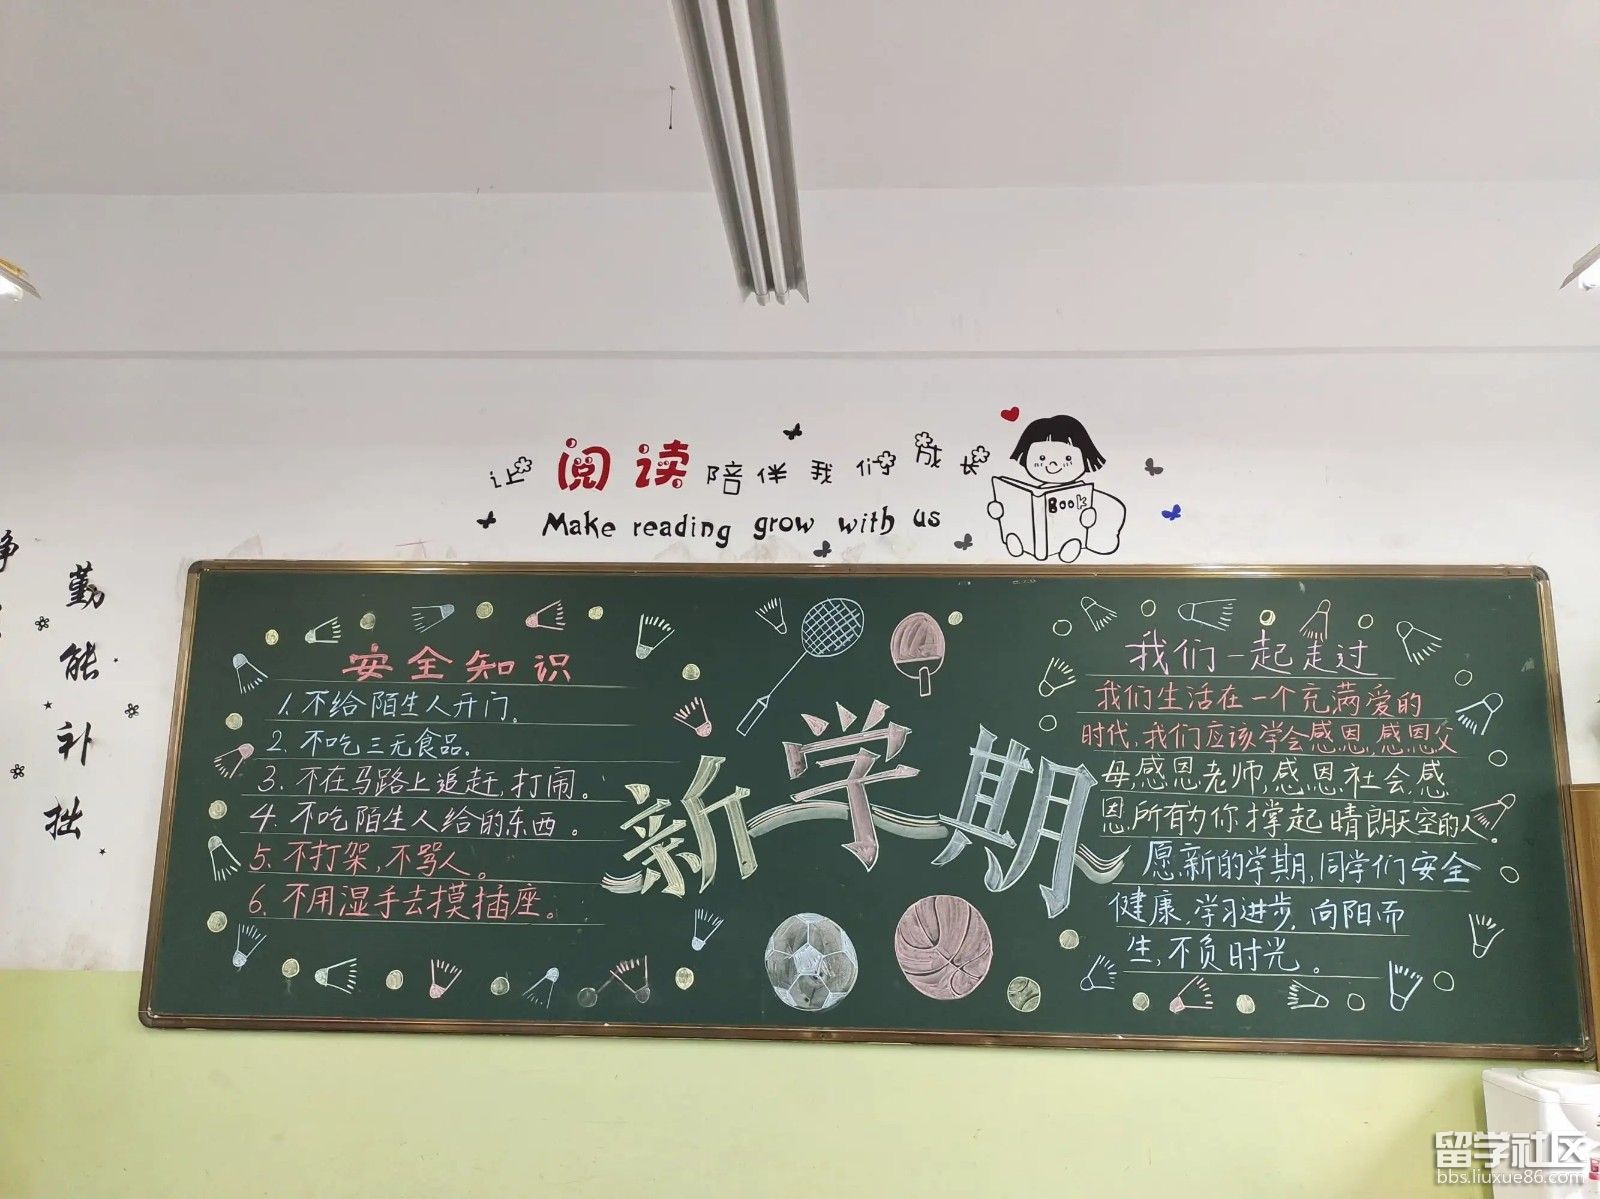 让阅读陪伴我们成长
Make reading grow with us
Book
勤能补拙
安全知识
1. 不给陌生人开门。
2. 不吃三无食品。
3. 不在马路上追赶,打闹。
4. 不吃陌生人给的东西。
5. 不打架,不骂人。
6. 不用湿手去摸插座。
新学期
我们一起走过
我们生活在一个充满爱的
时代,我们应该学会感恩,感恩父
母,感恩老师,感恩社会,感
恩所有为你撑起晴朗天空的人
愿新的学期,同学们安全
健康,学习进步,向阳而
生,不负时光。
留学社区
bbs.liuxue86.com